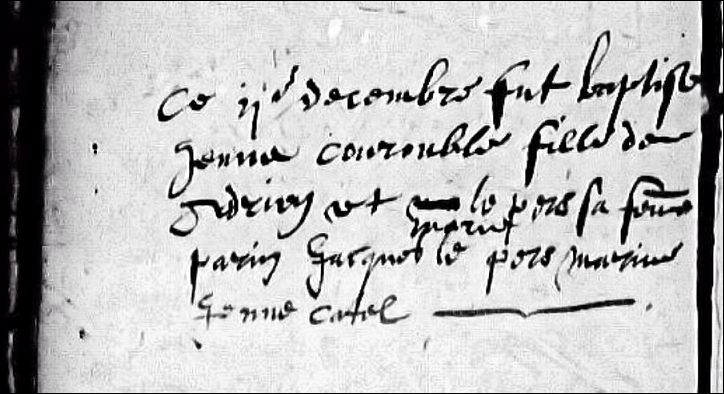 Ce iie decembre fut baptise
Jenne couroublé fille de
Adrien et le pers sa feme
marie
parin Jacques le pers marine
Jenne catel